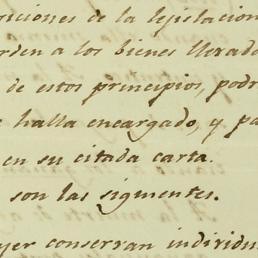 siciones de la legislacion
orden a los bienes llevado
de estos principios, podr
halla encargado, y pa
en su citada carta.
son las siguientes.
yer conservan individu